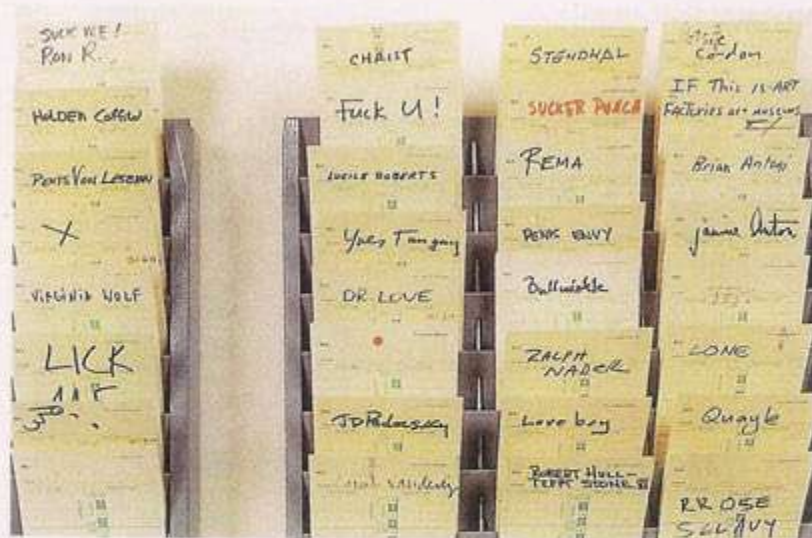 SUCK ME!
RON R.
HOLDEN
PENIS VON LESBIAN
X
VIRGINIA WOLF
LICK
CHRIST
Fuck U!
LUCILE ROBERTS
Yves Tanguy
DR. LOVE
JD
STENDHAL
SUCKER PUNCH
REMA
PENIS ENVY
Bullwinkle
RALPH
NADER
Love boy
ROBERT HULL-
TEPPT STONE III
Cordon
IF This is ART
FACTORIES are MUSEUMS
Brian Antoni
janine Anton
LONE
Quayle
RROSE
SELAVY